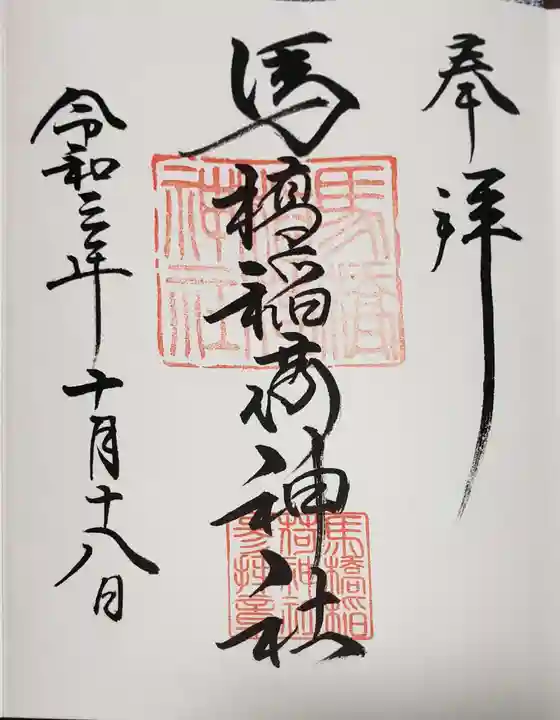 奉拝
馬橋稲荷神社
令和三年十月十八日
馬橋
神社
馬橋稲
荷神社
参拝章